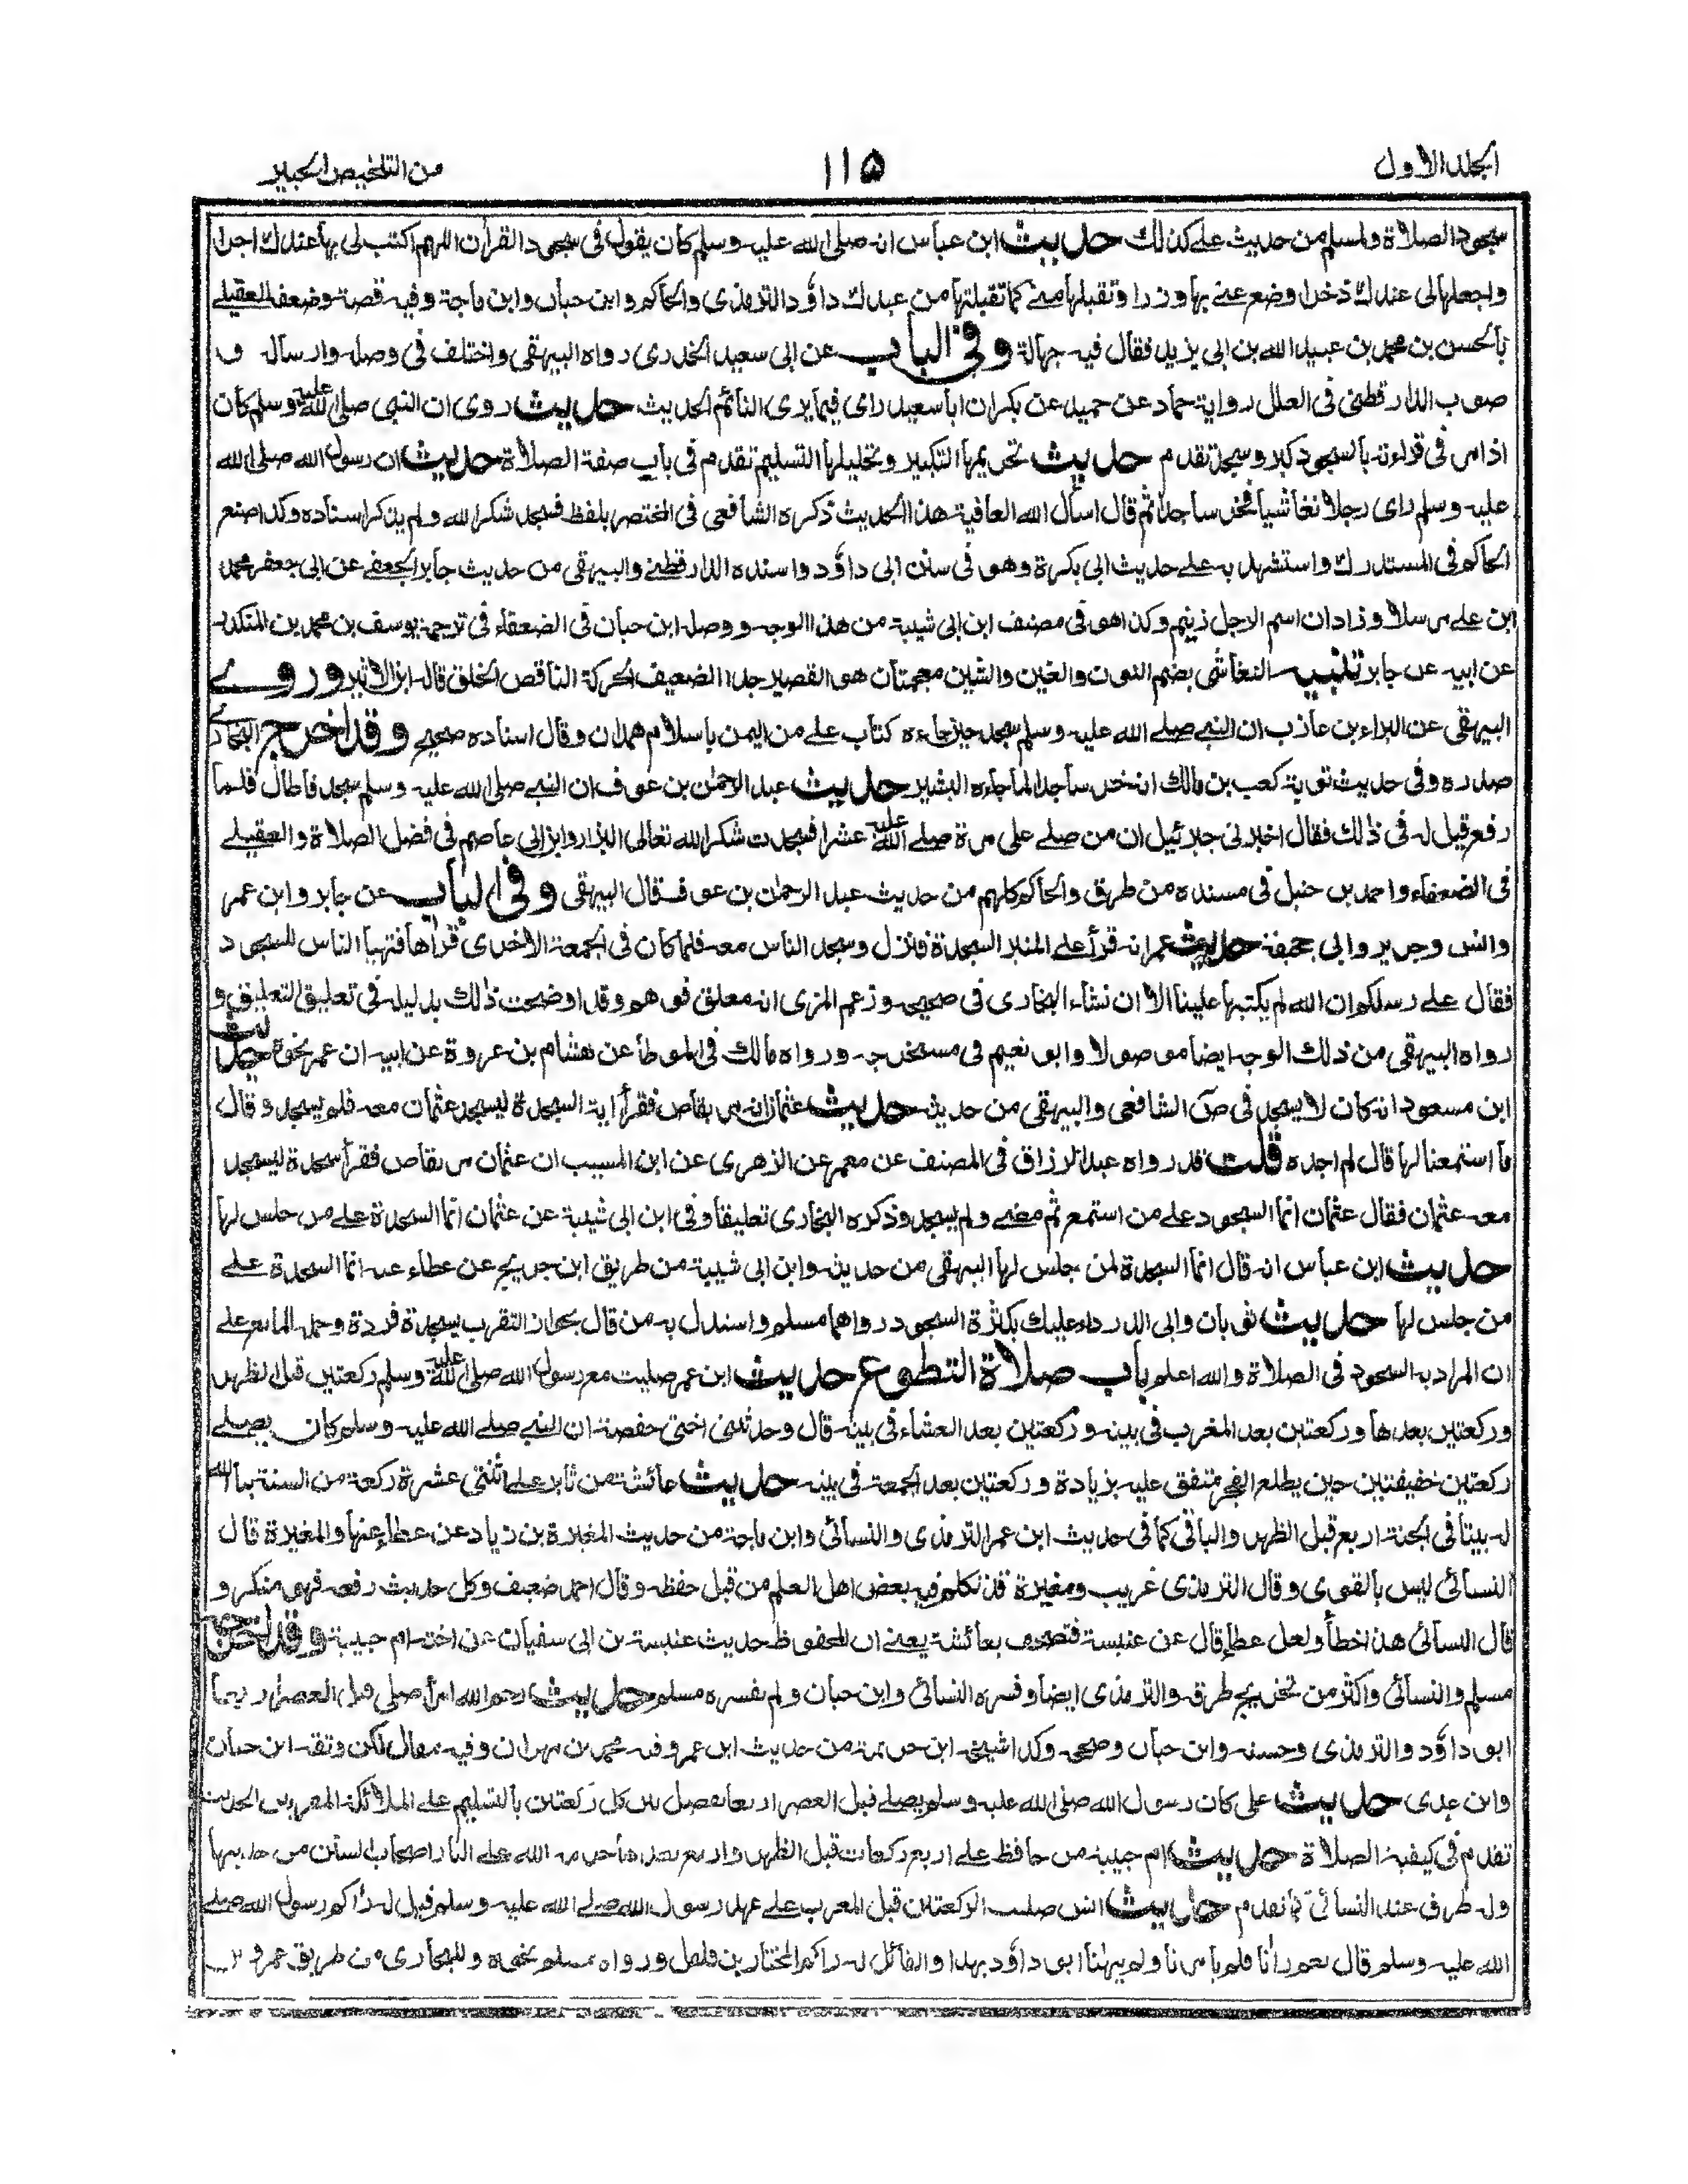 المجلد الاول
١١٥
من التلخيص الحبير
سجود الصلاة ولمسلم من حديث علے كذلك حديث ابن عباس انه صلى الله عليه وسلم كان يقول فى سجود القرآن اللهم اكتب لى بها عندك اجرا
واجعلها لى عندك ذخرا وضع عنے بها وزرا وتقبلها منے كما تقبلتها من عبدك داؤد الترمذى والحاكم وابن حبان وابن ماجة وفيه قصة وضعفه العقيلے
بالحسن بن محمد بن عبيد الله بن ابى يزيد فقال فيه جهالة وفى الباب عن ابى سعيد الخدرى رواه البيهقى واختلف فى وصله وارساله و
صوب الدارقطنى فى العلل رواية حماد عن حميد عن بكر ان ابا سعيد راى فيما يرى النائم الحديث حديث روى ان النبى صلى الله عليه وسلم كان
اذا مر فى قراءته بالسجود كبر وسجد تقدم حديث تحريمها التكبير وتحليلها التسليم تقدم فى باب صفة الصلاة حديث ان رسول الله صلى الله
عليه وسلم راى رجلا نغاشيا فخر ساجدا ثم قال اسأل الله العافية هذا الحديث ذكره الشافعى فى المختصر بلفظ فسجد شكرا لله ولم يذكر اسناده وكذا صنع
الحاكم فى المستدرك واستشهد به علے حديث ابى بكرة وهو فى سنن ابى داؤد واسنده الدارقطنے والبيهقى من حديث جابر الجعفے عن ابى جعفر محمد
ابن علے مرسلا وزاد ان اسم الرجل زنيم وكذا هو فى مصنف ابن ابى شيبة من هذا الوجه ووصله ابن حبان فى الضعفاء فى ترجمة يوسف بن محمد بن المنكدر
عن ابيه عن جابر تنبيه النغاشى بضم النون والغين والشين معجمتان هو القصير جدا الضعيف الحركة الناقص الخلق قاله ابن الاثير وروے
البيهقى عن البراء بن عازب ان النبے صلے الله عليه وسلم سجد حين جاءه كتاب علے من اليمن باسلام همدان وقال اسناده صحيح وقد اخرج البخارى
صدره وفى حديث توبة كعب بن مالك انه خر ساجدا لما جاءه البشير حديث عبد الرحمن بن عوف ان النبے صلى الله عليه وسلم سجد فاطال فلما
رفع قيل له فى ذلك فقال اخبرنى جبرئيل ان من صلے على مرة صلے الله عليه عشرا فسجدت شكرا لله تعالى البزار وابن ابى عاصم فى فضل الصلاة والعقيلے
فى الضعفاء واحمد بن حنبل فى مسنده من طريق والحاكم كلهم من حديث عبد الرحمن بن عوف قال البيهقى وفى الباب عن جابر وابن عمر
وانس وجرير وابى جحيفة حديث عمر انه قرأ علے المنبر السجدة فنزل وسجد الناس معه فلما كان فى الجمعة الاخرى قرأها فتهيأ الناس للسجود
فقال علے رسلكم ان الله لم يكتبها علينا الا ان نشاء البخارى فى صحيحه وزعم المزى انه معلق فوهم وقد اوضحت ذلك بدليله فى تعليق التعليق و
رواه البيهقى من ذلك الوجه ايضا موصولا وابو نعيم فى مستخرجه ورواه مالك فى الموطأ عن هشام بن عروة عن ابيه ان عمر نحوه حديث
ابن مسعود انه كان لا يسجد فى صٓ الشافعى والبيهقى من حديثه حديث عثمان انه مر بقاص فقرأ آية السجدة ليسجد عثمان معه فلم يسجد وقال
ما استمعنا لها قال لم اجده قلت قد رواه عبد الرزاق فى المصنف عن معمر عن الزهرى عن ابن المسيب ان عثمان مر بقاص فقرأ سجدة ليسجد
معه عثمان فقال عثمان انما السجود على من استمع ثم مضے ولم يسجد وذكره البخارى تعليقا وفى ابن ابى شيبة عن عثمان انما السجدة علے من جلس لها
حديث ابن عباس انه قال انما السجدة لمن جلس لها البيهقى من حديثه وابن ابى شيبة من طريق ابن جريج عن عطاء عنه انما السجدة علے
من جلس لها حديث ثوبان وابى الدرداء عليك بكثرة السجود رواهما مسلم واستدل به من قال بجواز التقرب بسجدة فردة وحمله المانع علے
ان المراد به السجود فى الصلاة والله اعلم باب صلاة التطوع حديث ابن عمر صليت مع رسول الله صلى الله عليه وسلم ركعتين قبل الظهر
وركعتين بعدها وركعتين بعد المغرب فى بيته وركعتين بعد العشاء فى بيته قال وحدثتنى اختى حفصة ان النبے صلے الله عليه وسلم كان يصلے
ركعتين خفيفتين حين يطلع الفجر متفق عليه بزيادة وركعتين بعد الجمعة فى بيته حديث عائشة من ثابر علے اثنتى عشرة ركعة من السنة بنا الله
له بيتا فى الجنة اربع قبل الظهر والباقى كما فى حديث ابن عمر الترمذى والنسائى وابن ماجة من حديث المغيرة بن زياد عن عطاء عنها والمغيرة قال
النسائى ليس بالقوى وقال الترمذى غريب ومغيرة قد تكلم فيه بعض اهل العلم من قبل حفظه وقال احمد ضعيف وكل حديث رفعه فهو منكر و
قال النسائى هذا خطأ ولعل عطاء قال عن عنبسة فتصحف بعائشة يعنے ان المحفوظ حديث عنبسة بن ابى سفيان عن اخته ام حبيبة وقد اخرجه
مسلم والنسائى واكثر من تخريج طرقه والترمذى ايضا وفسره النسائى وابن حبان ولم يفسره مسلم حديث رحم الله امرأ صلى قبل العصر اربعا
ابو داؤد والترمذى وحسنه وابن حبان وصححه وكذا شيخه ابن خزيمة من حديث ابن عمر وفيه محمد بن مهران وفيه مقال لكن وثقه ابن حبان
وابن عدى حديث على كان رسول الله صلى الله عليه وسلم يصلے قبل العصر اربعا يفصل بين كل ركعتين بالتسليم علے الملائكة المقربين الحديث
تقدم فى كيفية الصلاة حديث ام حبيبة من حافظ علے اربع ركعات قبل الظهر واربع بعدها حرمه الله علے النار اصحاب السنن من حديثها
وله طرق عند النسائى كما تقدم حديث انس صليت الركعتين قبل المغرب علے عهد رسول الله صلے الله عليه وسلم قيل له رأكم رسول الله صلے
الله عليه وسلم قال نعم رانا فلم يأمرنا ولم ينهنا ابو داؤد بهذا والقائل له راكم المختار بن فلفل ورواه مسلم بنحوه وللبخارى من طريق عمرو بن